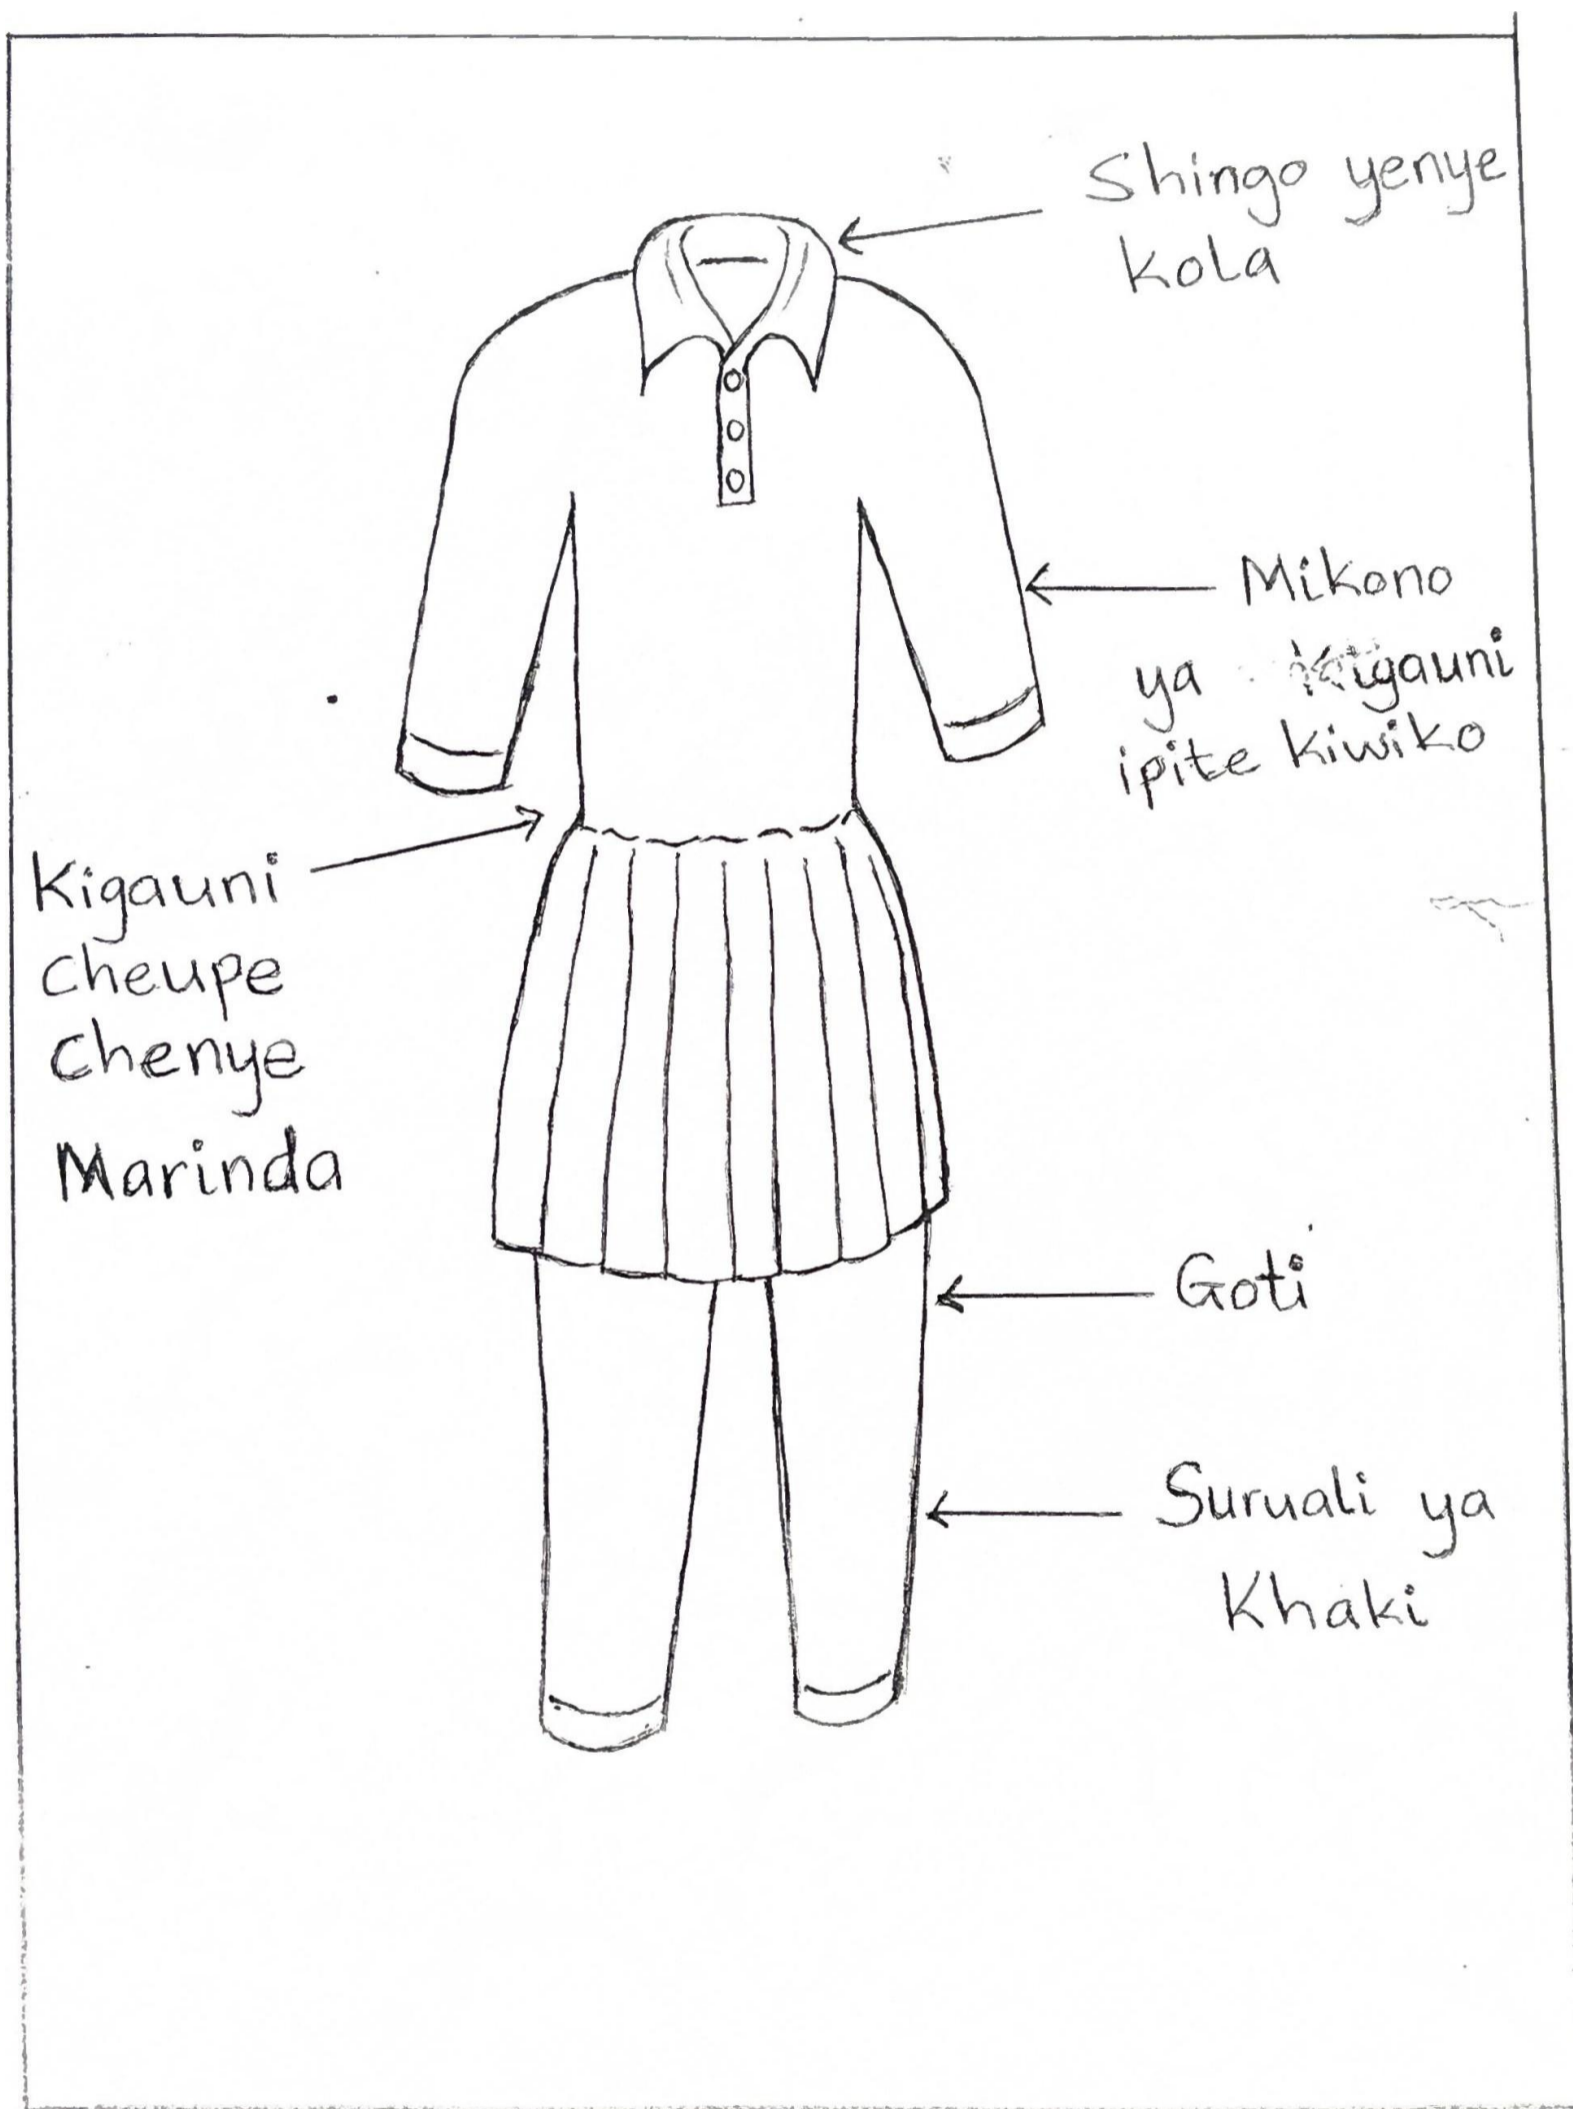 Shingo yenye
kola
Mikono
ya Kigauni
ipite kiwiko
Kigauni
cheupe
chenye
Marinda
Goti
Suruali ya
Khaki